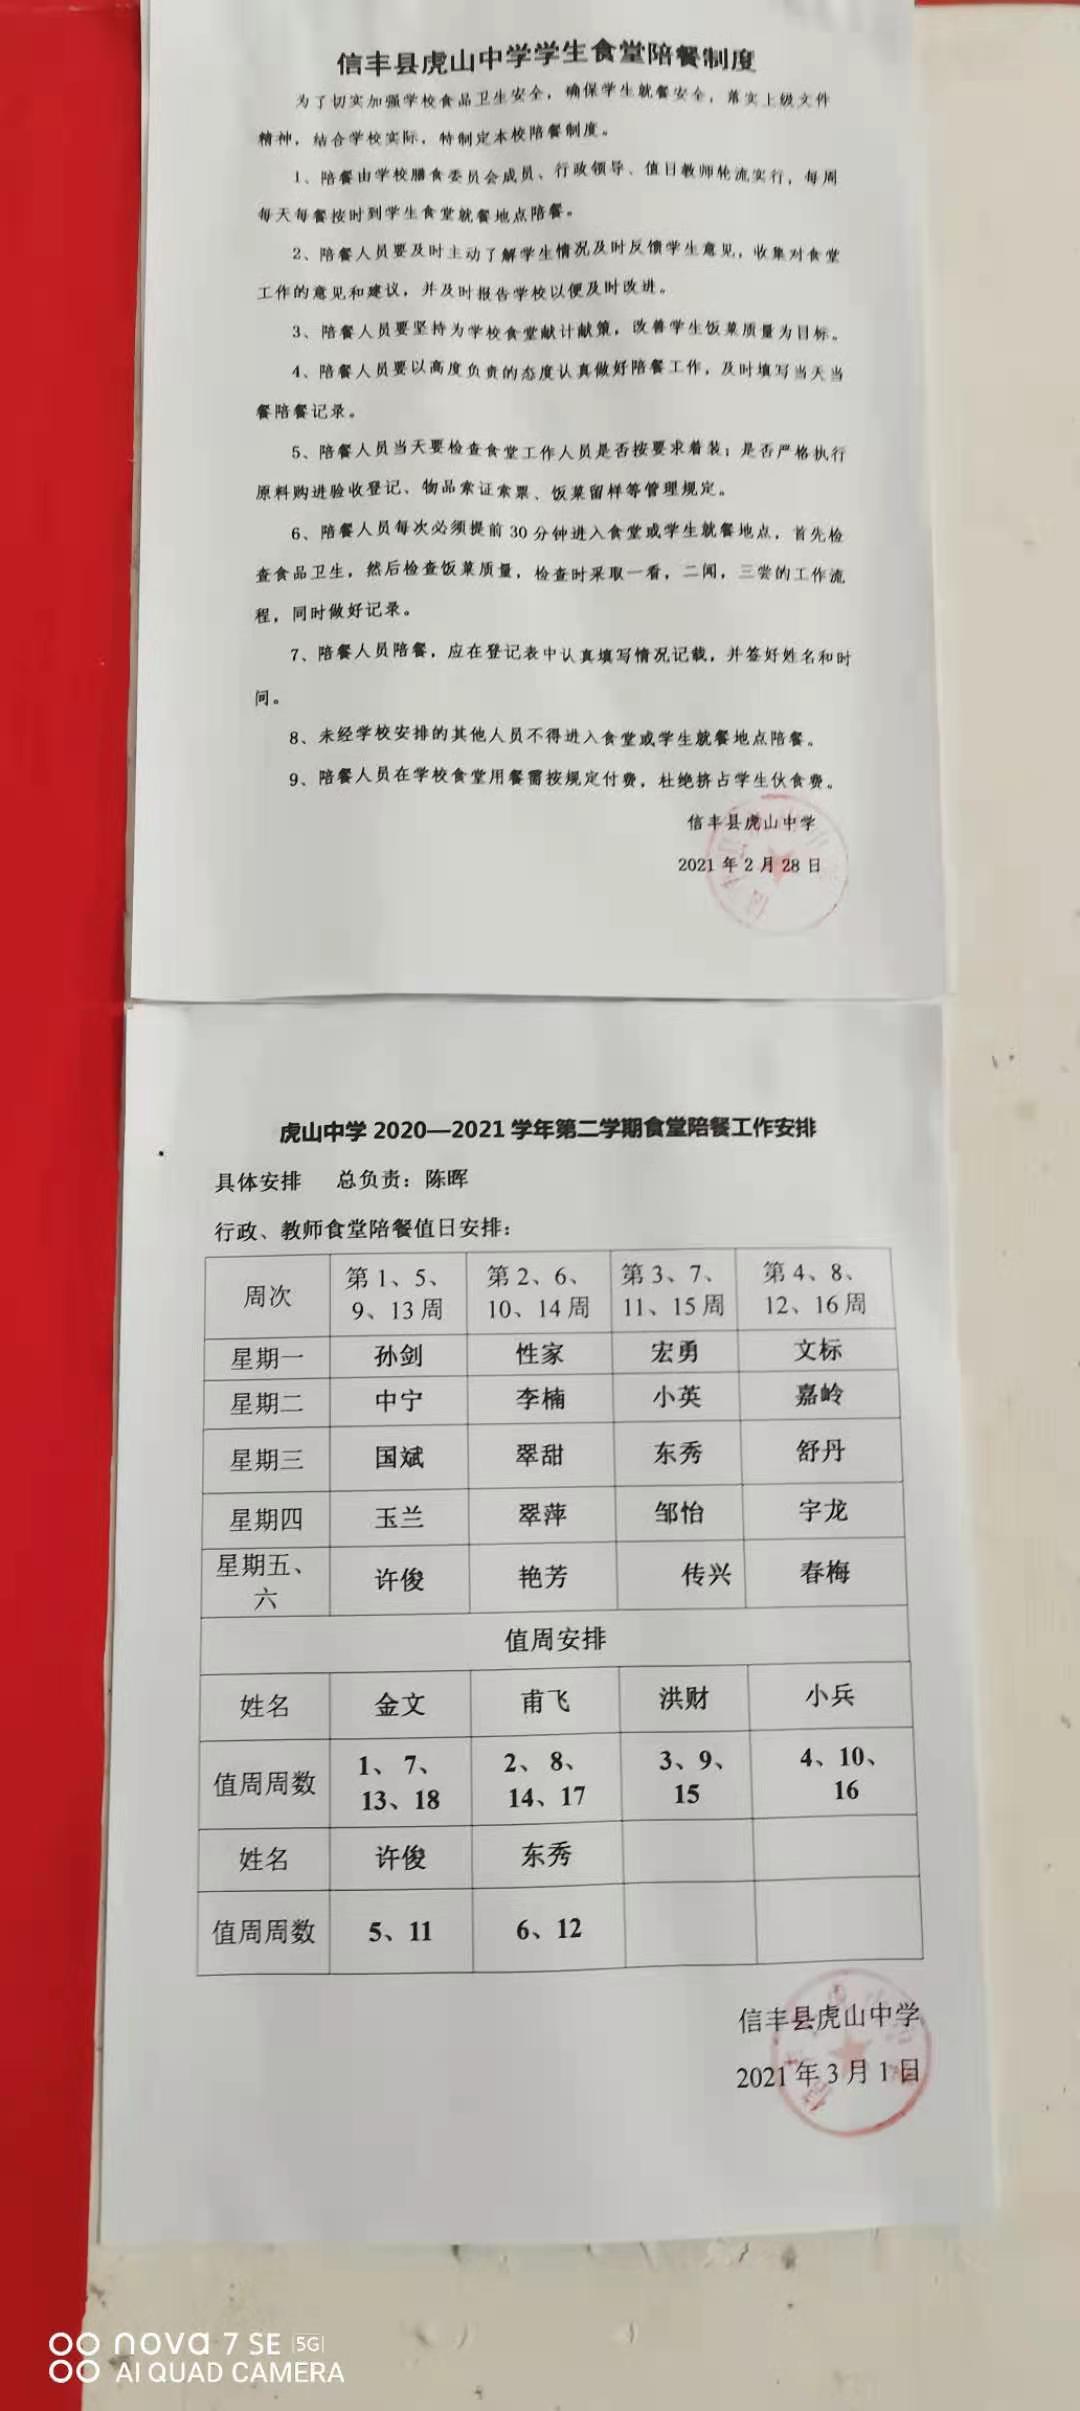 信丰县虎山中学学生食堂陪餐制度
为了切实加强学校食品卫生安全，确保学生就餐安全，落实上级文件
精神，结合学校实际，特制定本校陪餐制度。
1、陪餐由学校膳食委员会成员、行政领导、值日教师轮流实行，每周
每天每餐按时到学生食堂就餐地点陪餐。
2、陪餐人员要及时主动了解学生情况及时反馈学生意见，收集对食堂
工作的意见和建议，并及时报告学校以便及时改进。
3、陪餐人员要坚持为学校食堂献计献策，改善学生饭菜质量为目标。
4、陪餐人员要以高度负责的态度认真做好陪餐工作，及时填写当天当
餐陪餐记录。
5、陪餐人员当天要检查食堂工作人员是否按要求着装；是否严格执行
原料购进验收登记、物品索证索票、饭菜留样等管理规定。
6、陪餐人员每次必须提前30分钟进入食堂或学生就餐地点，首先检
查食品卫生，然后检查饭菜质量，检查时采取一看，二闻，三尝的工作流
程，同时做好记录。
7、陪餐人员陪餐，应在登记表中认真填写情况记载，并签好姓名和时
间。
8、未经学校安排的其他人员不得进入食堂或学生就餐地点陪餐。
9、陪餐人员在学校食堂用餐需按规定付费，杜绝挤占学生伙食费。
信丰县虎山中学
2021年2月28日
虎山中学2020—2021学年第二学期食堂陪餐工作安排
具体安排 总负责：陈晖
行政、教师食堂陪餐值日安排：
周次 第1、5、9、13周 第2、6、10、14周 第3、7、11、15周 第4、8、12、16周
星期一 孙剑 性家 宏勇 文标
星期二 中宁 李楠 小英 嘉岭
星期三 国斌 翠甜 东秀 舒丹
星期四 玉兰 翠萍 邹怡 宇龙
星期五、六 许俊 艳芳 传兴 春梅
值周安排
姓名 金文 甫飞 洪财 小兵
值周周数 1、7、13、18 2、8、14、17 3、9、15 4、10、16
姓名 许俊 东秀
值周周数 5、11 6、12
信丰县虎山中学
2021年3月1日
nova 7 SE 5G
AI QUAD CAMERA